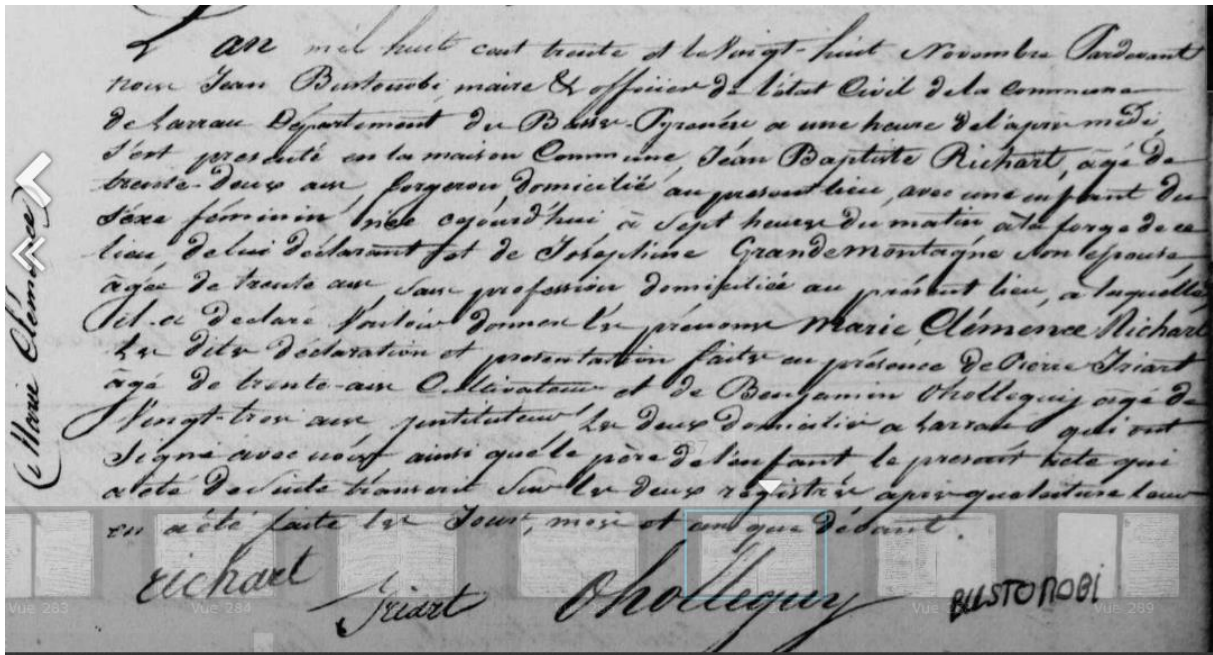 L'an mil huit cent trente et le vingt-huit Novembre Pardevant
nous Jean Bustonobi, maire & officier de l'état Civil de la commune
de Larrau Département du Basse-Pyrenées a une heure de l'après medi,
s'est presenté en la maison Commune, Jean Baptiste Richart, agé de
trente-deux ans forgeron, domicilié au present lieu, avec une enfant du
sexe féminin née cejourd'hui, à sept heures du matin, à la forge de ce
lieu, de lui déclarant et de Joséphine Grandemontagne son épouse
âgée de trente ans, sans profession domiciliée au présent lieu, a laquelle
il a declaré vouloir donner les prénoms Marie Clémence Richart
les dites déclaration et presentation faites en présence de Pierre Iriart
âgé de trente-ans Cultivateur et de Benjamin Oholleguy agé de
vingt-trois ans instituteur, les deux domiciliés a Larrau qui ont
signé avec nous ainsi que le père de l'enfant le present acte qui
a été de suite transcrit sur les deux registres après que lecture leur
en a été faite les Jour, mois et an que dévant.
richart
Iriart
Oholleguy
BUSTONOBI
Marie Clémence
Vue 283
Vue 284
Vue 289